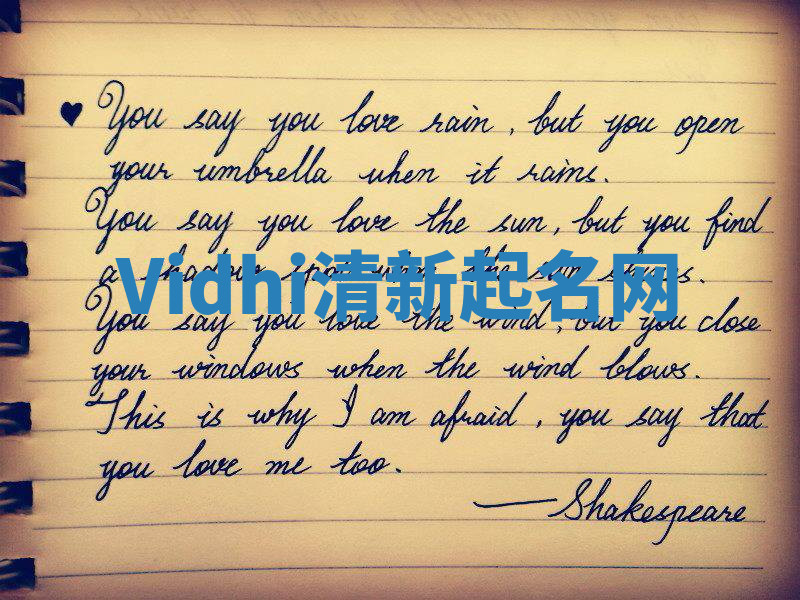 ♥ You say you love rain, but you open
your umbrella when it rains.
You say you love the sun, but you find
a shadow spot when the sun shines.
Vidhi清新起名网
You say you love the wind, but you close
your windows when the wind blows.
This is why I am afraid, you say that
you love me too.
—Shakespeare